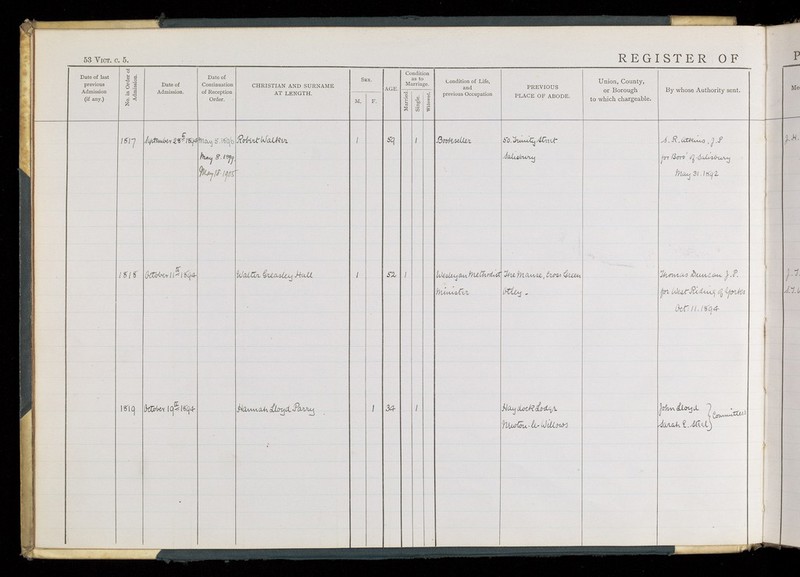 53 VICT. C. 5.
REGISTER OF
Date of last previous Admission (if any.)
No. in Order of Admission.
Date of Admission.
Date of Continuation of Reception Order.
CHRISTIAN AND SURNAME AT LENGTH.
SEX.
M.
F.
AGE.
Condition as to Marriage.
Married.
Single.
Widowed.
Condition of Life, and previous Occupation
PREVIOUS PLACE OF ABODE.
Union, County, or Borough to which chargeable.
By whose Authority sent.
1817 September 28th 1894 May 8. 1896 Robert Walker 1 59 1 Bookseller 50. Trinity Street A. R. Atkins, J.P.
May 8. 1899 Salisbury for Boro' of Salisbury
May 18. 1905 May 31. 1892
1818 October 11th 1894 Walter Greasley Hull 1 52 1 Wesleyan Methodist The Manse, Cross Green Thomas Duncan J.P.
Minister Otley for West Riding of Yorks
Oct. 11. 1894
1819 October 19th 1894 Hannah Lloyd Parry 1 34 1 Haydock Lodge John Lloyd
Newton-le-Willows Sarah E. Committees